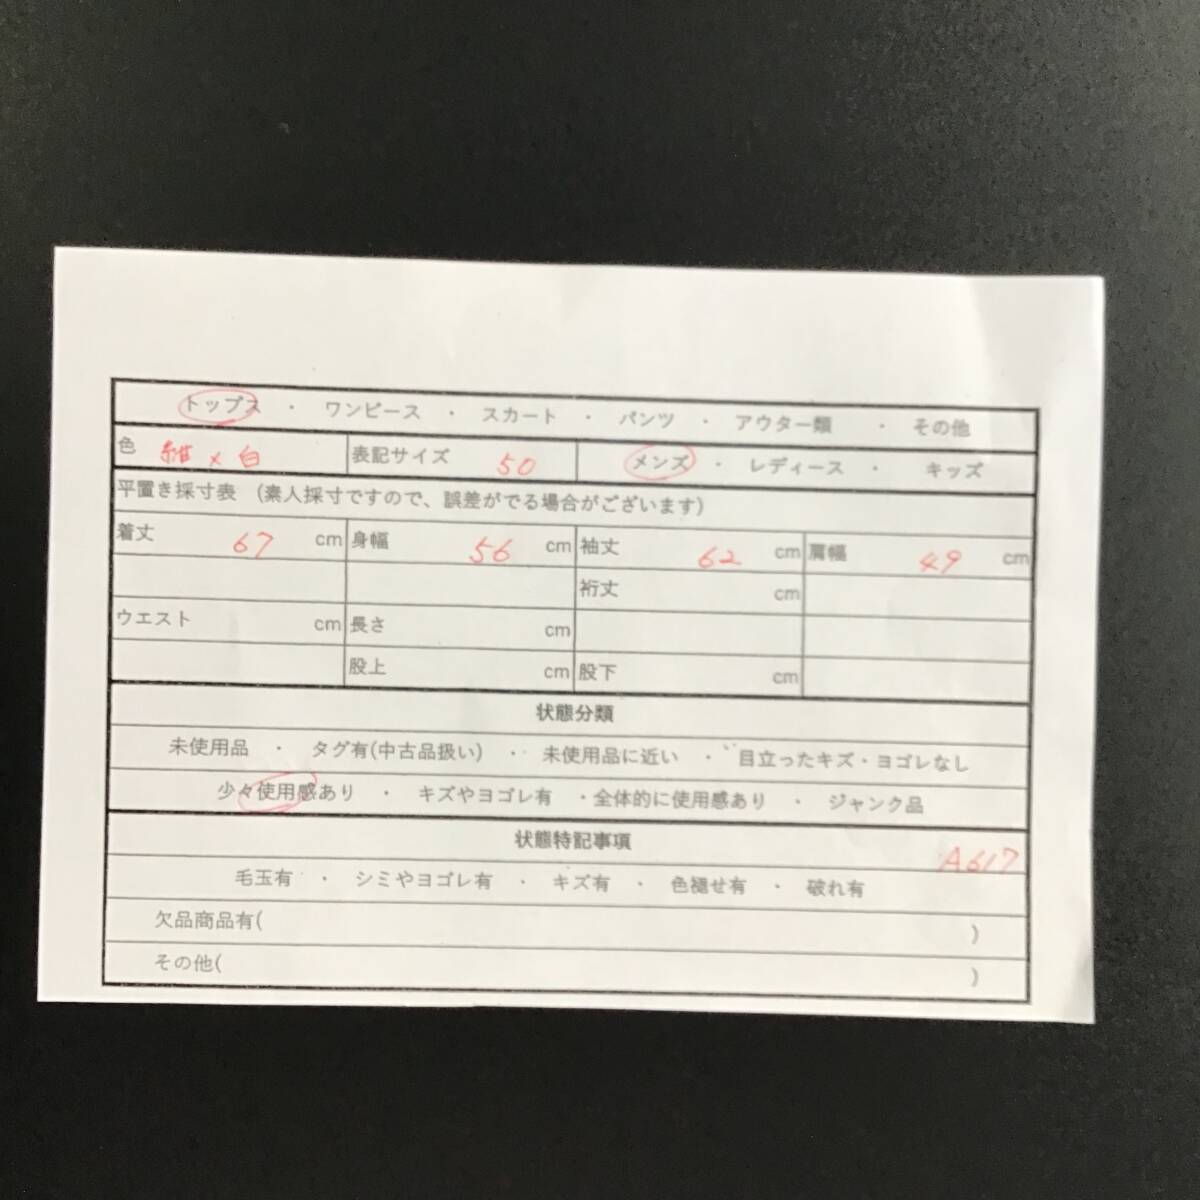 トップス ・ ワンピース ・ スカート ・ パンツ ・ アウター類 ・ その他
色 紺×白 表記サイズ 50 メンズ ・ レディース ・ キッズ
平置き採寸表 (素人採寸ですので、誤差がでる場合がございます)
着丈 67 cm 身幅 56 cm 袖丈 62 cm 肩幅 49 cm
裄丈 cm
ウエスト cm 長さ cm
股上 cm 股下 cm
状態分類
未使用品 ・ タグ有(中古品扱い) ・ 未使用品に近い ・ 目立ったキズ・ヨゴレなし
少々使用感あり ・ キズやヨゴレ有 ・全体的に使用感あり ・ ジャンク品
状態特記事項
A617
毛玉有 ・ シミやヨゴレ有 ・ キズ有 ・ 色褪せ有 ・ 破れ有
欠品商品有( )
その他( )